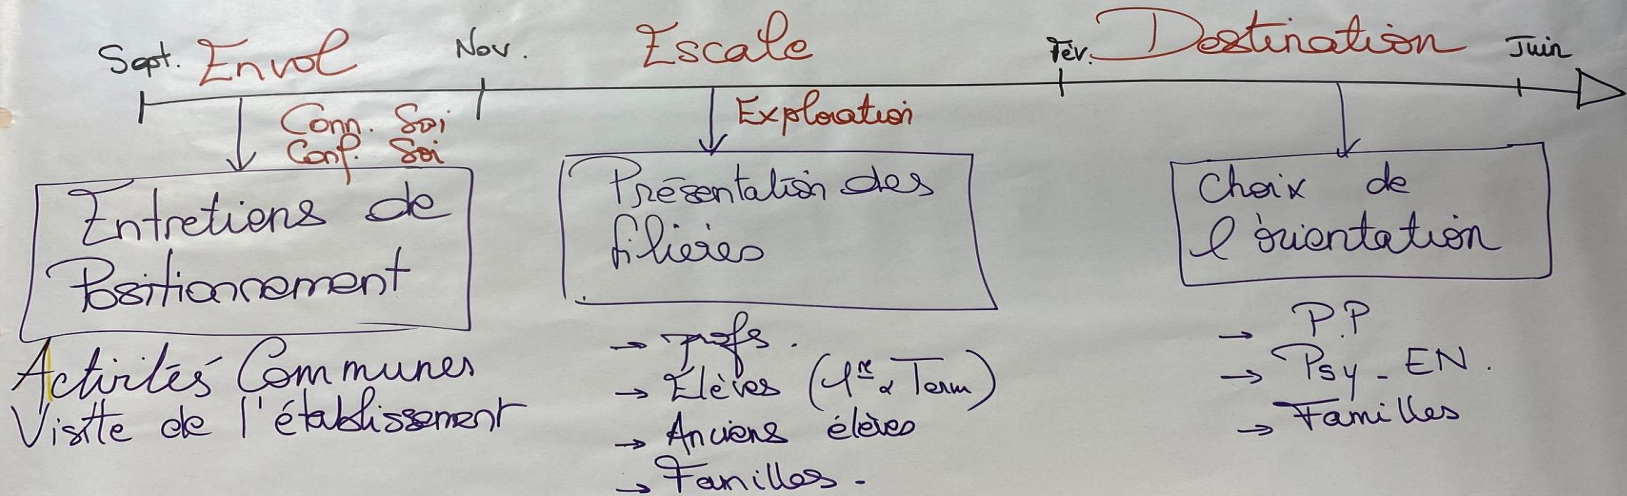 Sept. Envol Nov. Escale Fév. Destination Juin
Conn. Soi
Conf. Soi
Exploration
Entretiens de
Positionnement
Activités Communes
Visite de l'établissement
Présentation des
filières
→ profs.
→ Élèves (1re & Term)
→ Anciens élèves
→ Familles.
Choix de
l'orientation
→ P.P
→ Psy-EN.
→ Familles